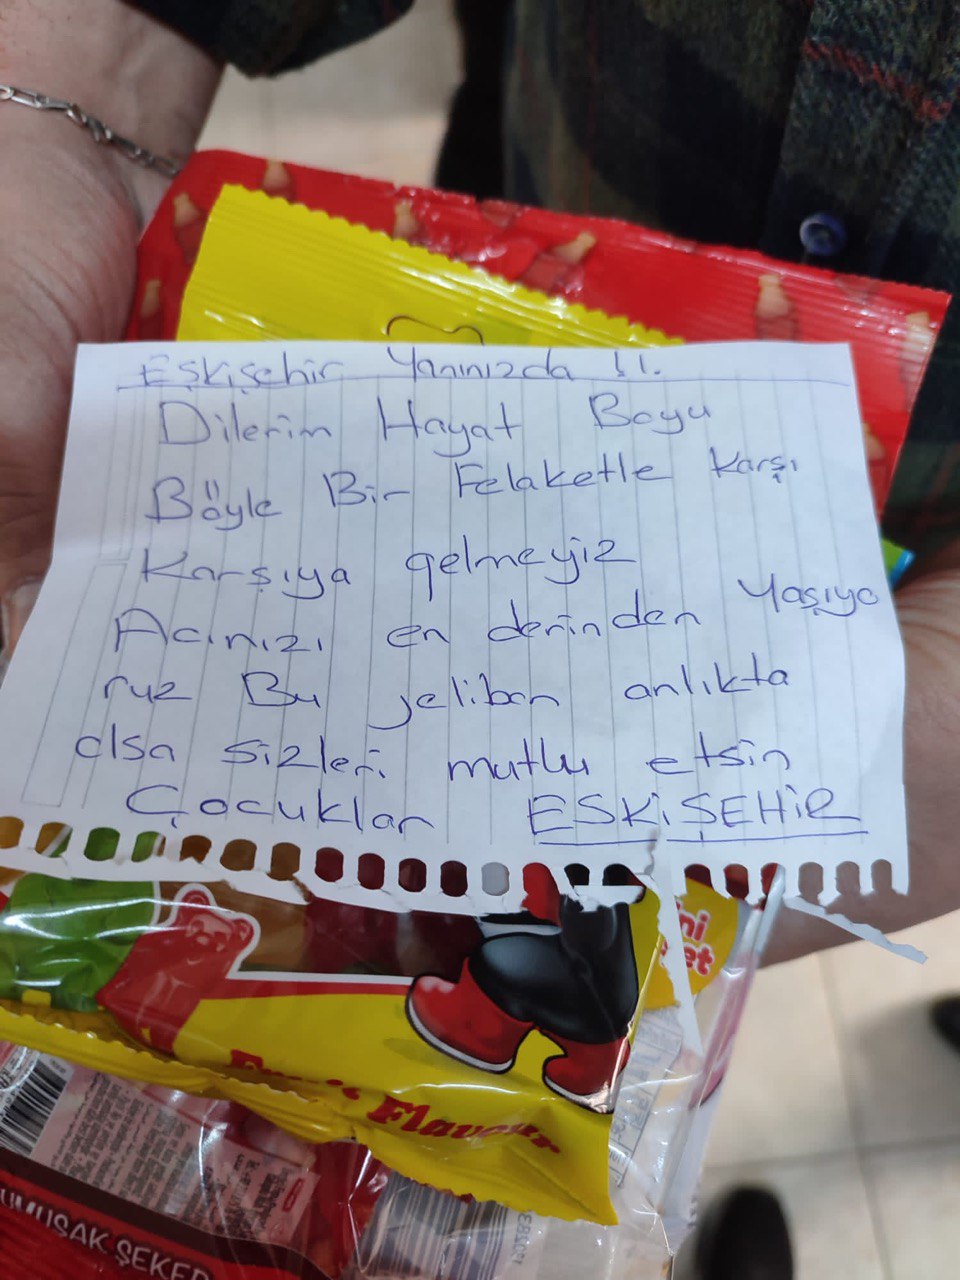 Eskişehir Yanınızda !!.
Dilerim Hayat Boyu
Böyle Bir Felaketle Karşı
Karşıya gelmeyiz
Acınızı en derinden Yaşıyo
ruz Bu jelibon anlıkta
olsa sizleri mutlu etsin
Çocuklar ESKİŞEHİR
Fruit Flavour
UMUŞAK ŞEKER